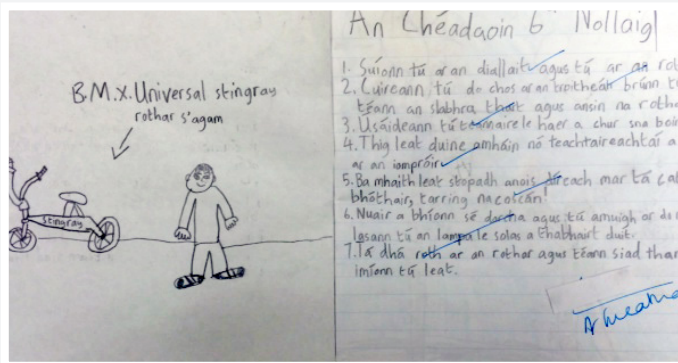 B.M.X. Universal stingray
rothar s'agam
Stingray
An Chéadaoin 6 Nollaig
1. Suíonn tú ar an diallait agus tú ar an
2. Cuireann tú do chos ar an troitheán
téann an slabhra thart agus ansin na
3. Úsáideann tú teannaire le haer a chur sna
4. Thig leat duine amháin nó teachtaireachtaí a
ar an iompróir
5. Ba mhaith leat stopadh anois díreach mar tá
bhóthair, tarring na coscáin!
6. Nuair a bhíonn sé dorcha agus tú amuigh ar do
lasann tú an lampa le solas a thabhairt duit.
7. Tá dhá roth ar an rothar agus téann siad
imíonn tú leat.